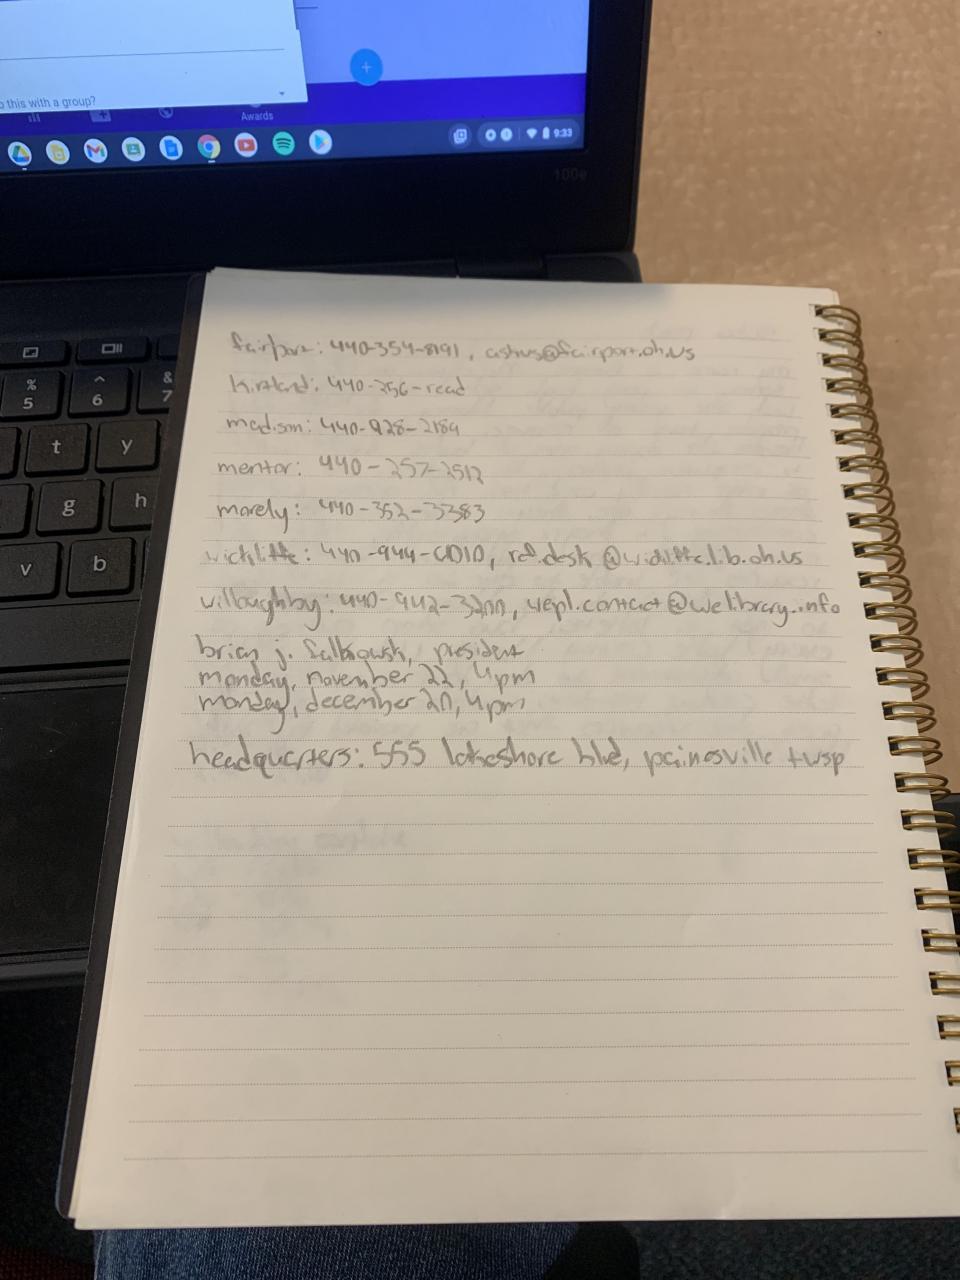 o this with a group?
Awards
9:33
100e
%
5
^
6
&
7
t
y
g
h
v
b
fairport: 440-354-8191, @fairport.oh.us
kirtland: 440-256-read
madison: 440-928-2189
mentor: 440-257-2512
morely: 440-352-3383
wickliffe: 440-944-6010, ref.desk @wickliffe.lib.oh.us
willoughby: 440-942-3200, wepl.contact@welibrary.info
brian j. president
monday, november 22, 4pm
monday, december 20, 4pm
headquarters: 555 lakeshore blvd, painesville twsp